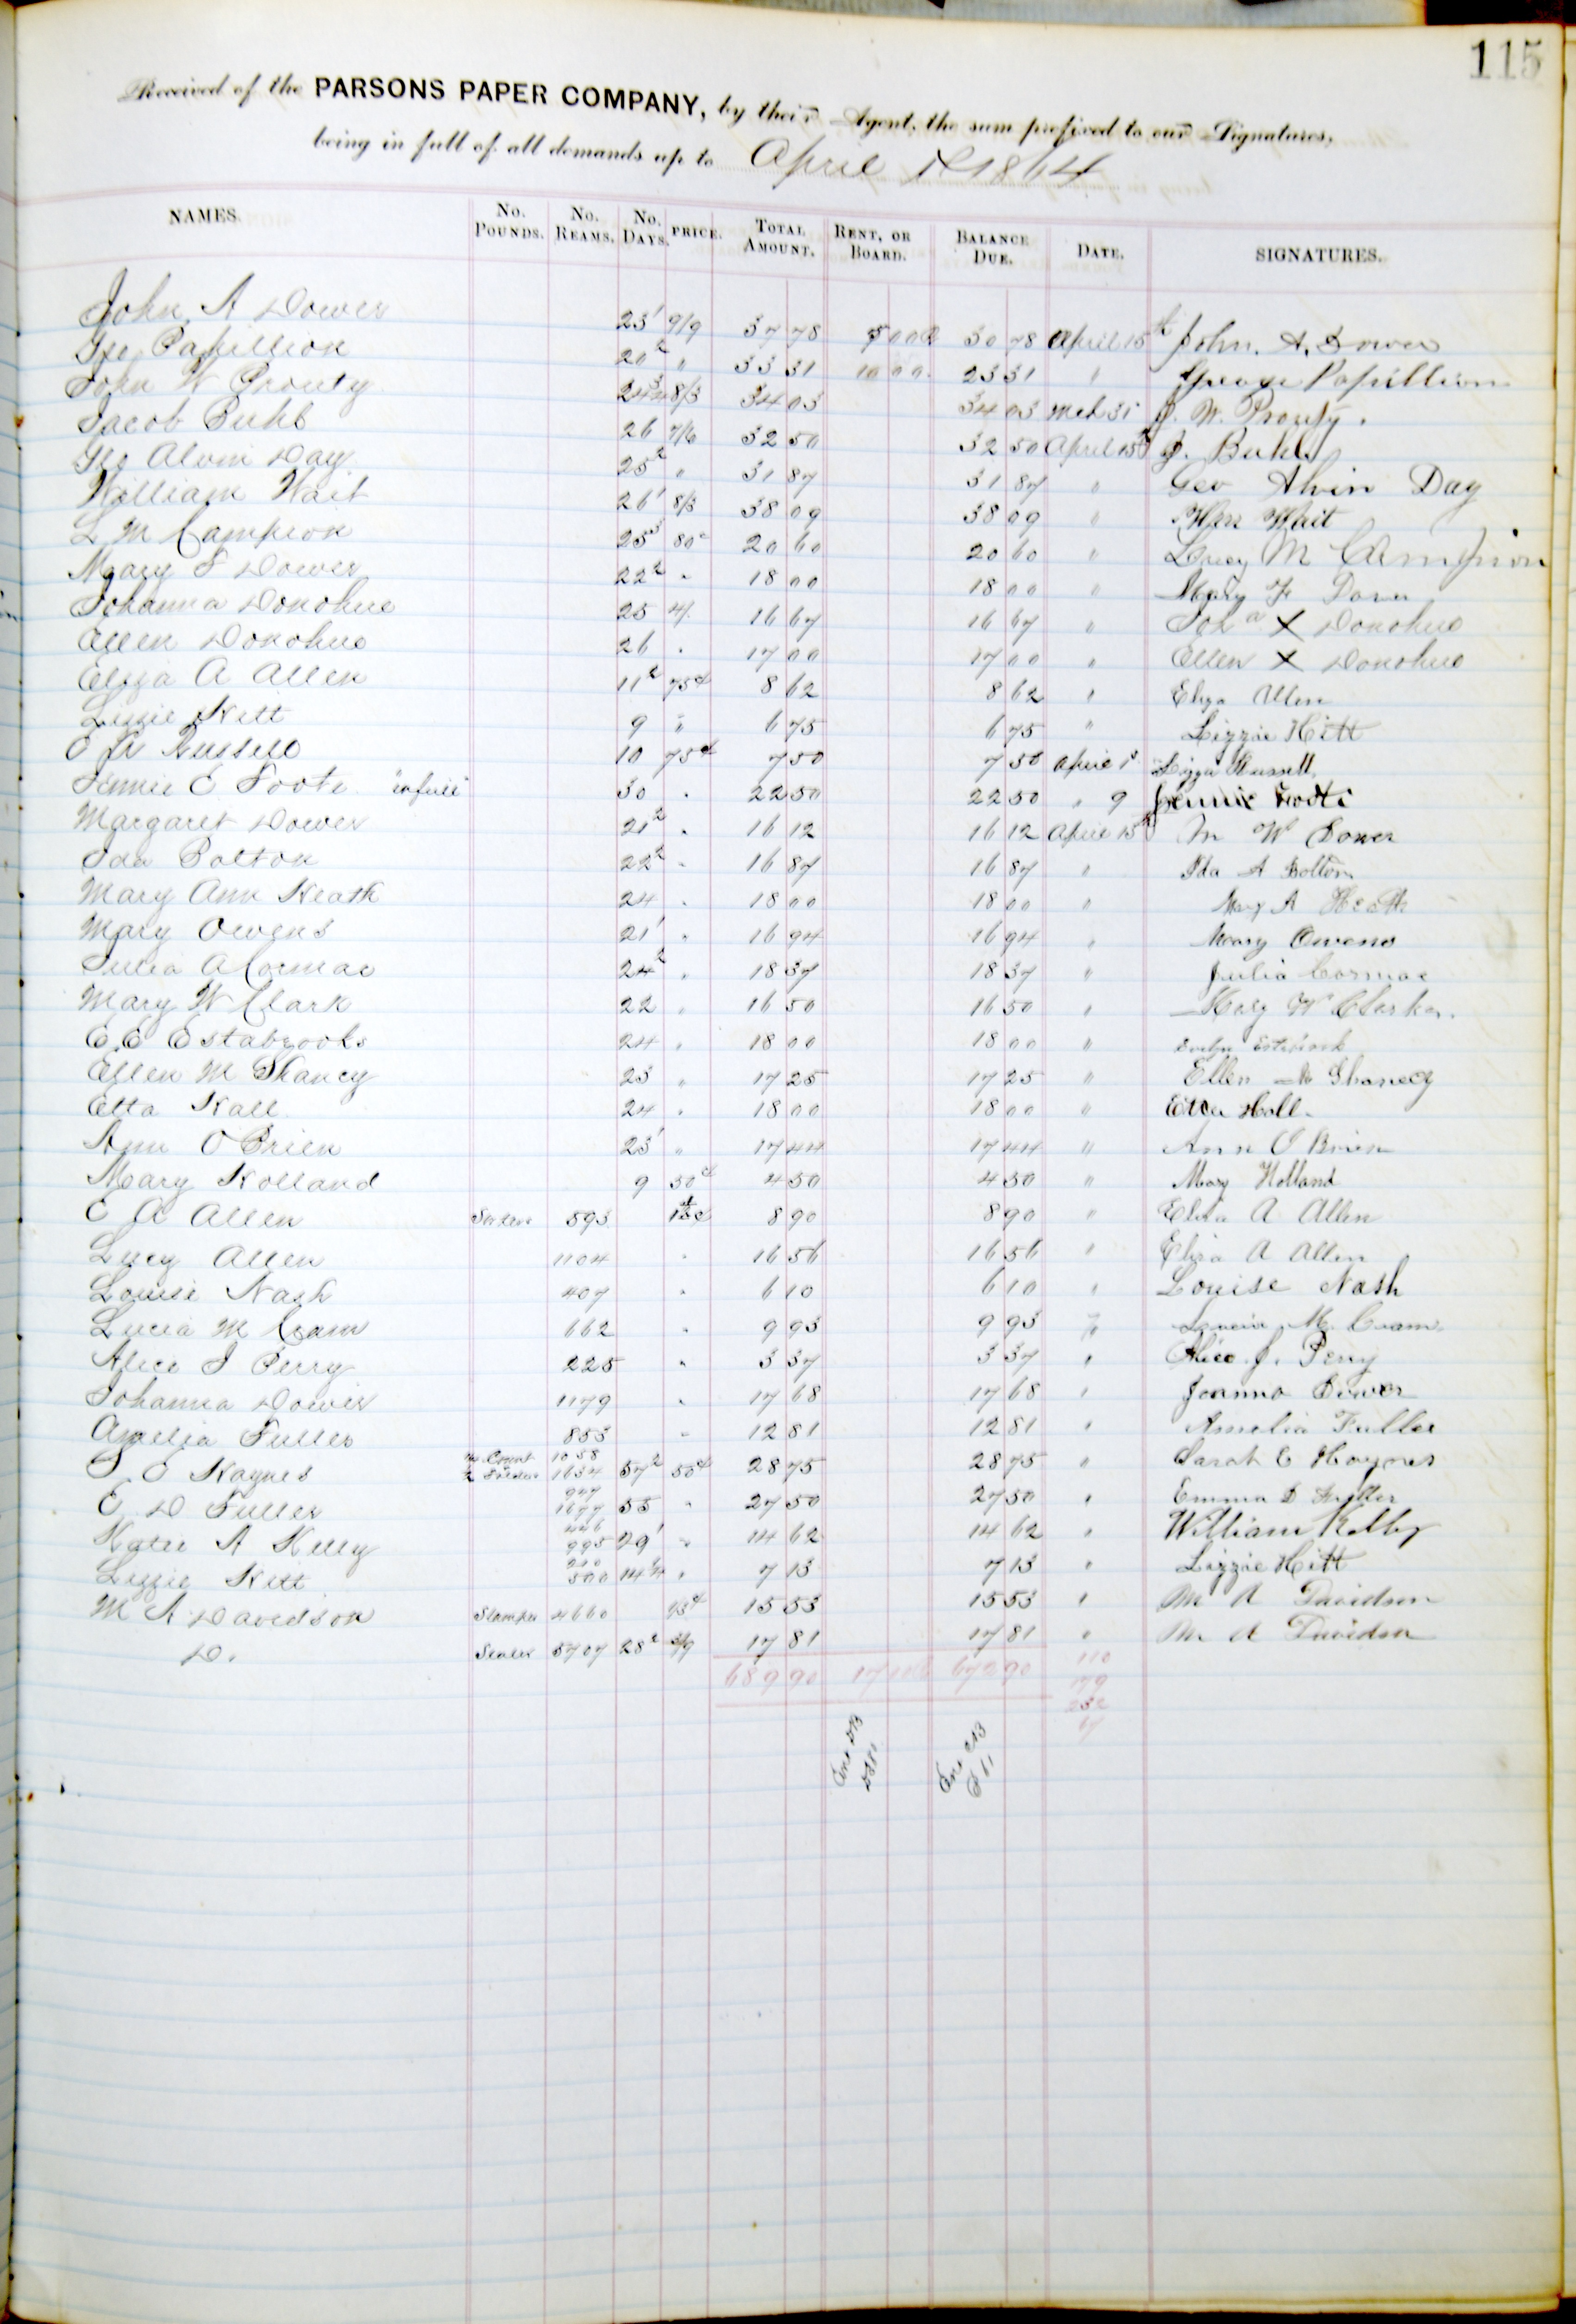 115
Received of the PARSONS PAPER COMPANY, by their Agent, the sum prefixed to our Signatures,
being in full of all demands up to April 1st 1864
NAMES. No. POUNDS. No. REAMS. No. DAYS. PRICE. TOTAL AMOUNT. RENT, OR BOARD. BALANCE DUE. DATE. SIGNATURES.
John A Dower 23 1 9/9 37 78 7 00 30 78 April 15th John. A. Dower
Geo Papillion 20 2 " 33 31 10 00 23 31 " George Papillion
John W Prouty 24 3/4 8/3 34 03 34 03 Mch 31 J. W. Prouty.
Jacob Buhl 26 7/6 32 50 32 50 April 15th J. Buhl
Geo Alvin Day 25 2 " 31 87 31 87 " Geo Alvin Day
William Wait 26 1 8/3 38 09 38 09 " Wm Wait
L M Campion 25 3 80c 20 60 20 60 " Lucy M Campion
Mary F Dower 22 2 " 18 00 18 00 " Mary F Dower
Johanna Donohue 25 4/ 16 67 16 67 " Joha X Donohue
Ellen Donohue 26 " 17 00 17 00 " Ellen X Donohue
Eliza A Allen 11 2 75c 8 62 8 62 " Eliza Allen
Lizzie Hitt 9 " 6 75 6 75 " Lizzie Hitt
E A Russell 10 75c 7 50 7 50 April 1st Lizzie Russell
Jennie E Foote "in full" 30 " 22 50 22 50 " 9 Jennie Foote
Margaret Dower 21 2 " 16 12 16 12 April 15th M W Dower
Ida Bolton 22 2 " 16 87 16 87 " Ida A Bolton
Mary Ann Heath 24 " 18 00 18 00 " Mary A Heath
Mary Owens 21 1 " 16 94 16 94 " Mary Owens
Julia A Cormac 24 2 " 18 37 18 37 " Julia Cormac
Mary W Clark 22 " 16 50 16 50 " Mary W Clark
E. E Estabrooks 24 " 18 00 18 00 "
Ellen M Shancy 23 " 17 25 17 25 " Ellen M Shanecy
Etta Hall 24 " 18 00 18 00 " Etta Hall.
Ann O Brien 23 1 " 17 44 17 44 " Ann O Brien
Mary Holland 9 50c 4 50 4 50 " Mary Holland
E A Allen 593 8 90 8 90 " Eliza A Allen
Lucy Allen 1104 " 16 56 16 56 " Eliza A Allen
Louise Nash 407 " 6 10 6 10 " Louise Nash
Lucia M Cram 662 " 9 93 9 93 " Lucia M. Cram.
Alice J Perry 225 " 3 37 3 37 " Alice. J. Perry
Johanna Dower 1179 " 17 68 17 68 " Joanna Dower
Amelia Fuller 853 " 12 81 12 81 " Amelia Fuller
S E Haynes Count 1058 1634 57 2 50c 28 75 28 75 " Sarah E Haynes
E D Fuller 1677 55 " 27 50 27 50 " Emma D Fuller
Katie A Kelly 446 995 29 1 " 14 62 14 62 " William Kelly
Lizzie Hitt 200 500 14 1/4 " 7 13 7 13 " Lizzie Hitt
M A Davidson Stamper 4660 15 53 15 53 " M A Davidson
Do. Sealer 5707 28 2 17 81 17 81 " M. A Davidson
689 90 17 00 672 90 110
179
232
67